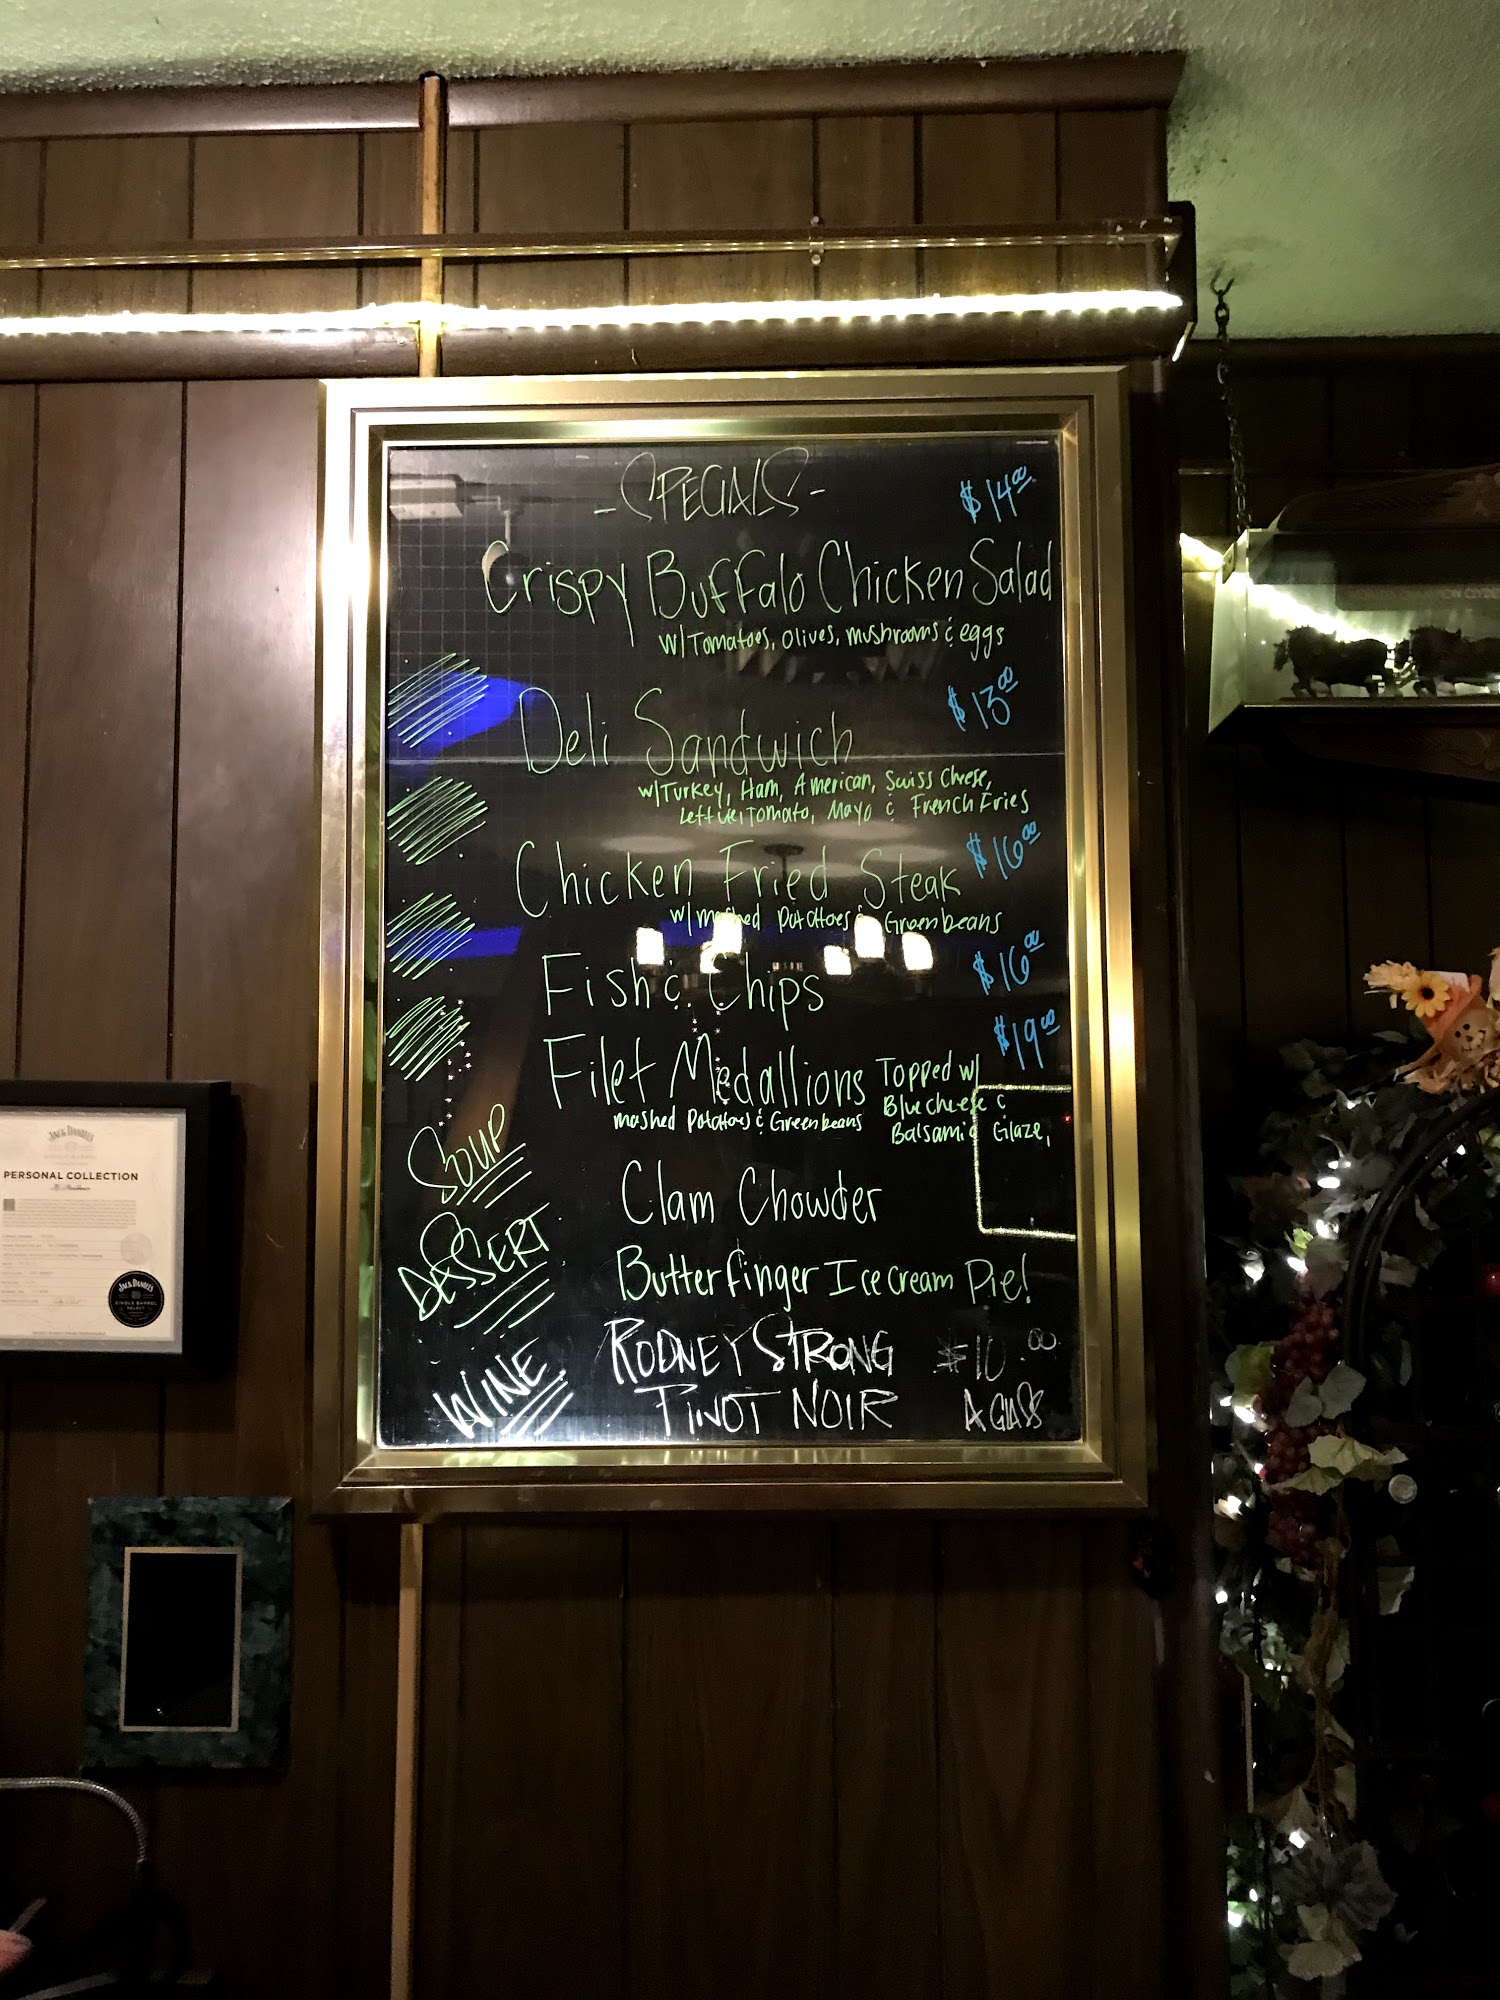 -SPECIALS-
$14.00
Crispy Buffalo Chicken Salad
w/Tomatoes, Olives, mushrooms & eggs
$13.00
Deli Sandwich
w/Turkey, Ham, American, Swiss Cheese,
Lettuce, Tomato, Mayo & French Fries
Chicken Fried Steak $16.00
w/mashed Potatoes & Greenbeans
Fish & Chips $16.00
$19.00
Filet Medallions Topped w/
Bluecheese &
mashed Potatoes & Greenbeans Balsamic Glaze,
SOUP Clam Chowder
DESSERT Butterfinger Ice Cream Pie!
WINE RODNEY STRONG $10.00
PINOT NOIR A GLASS
JACK DANIEL'S
PERSONAL COLLECTION
JACK DANIEL'S
SINGLE BARREL
SELECT